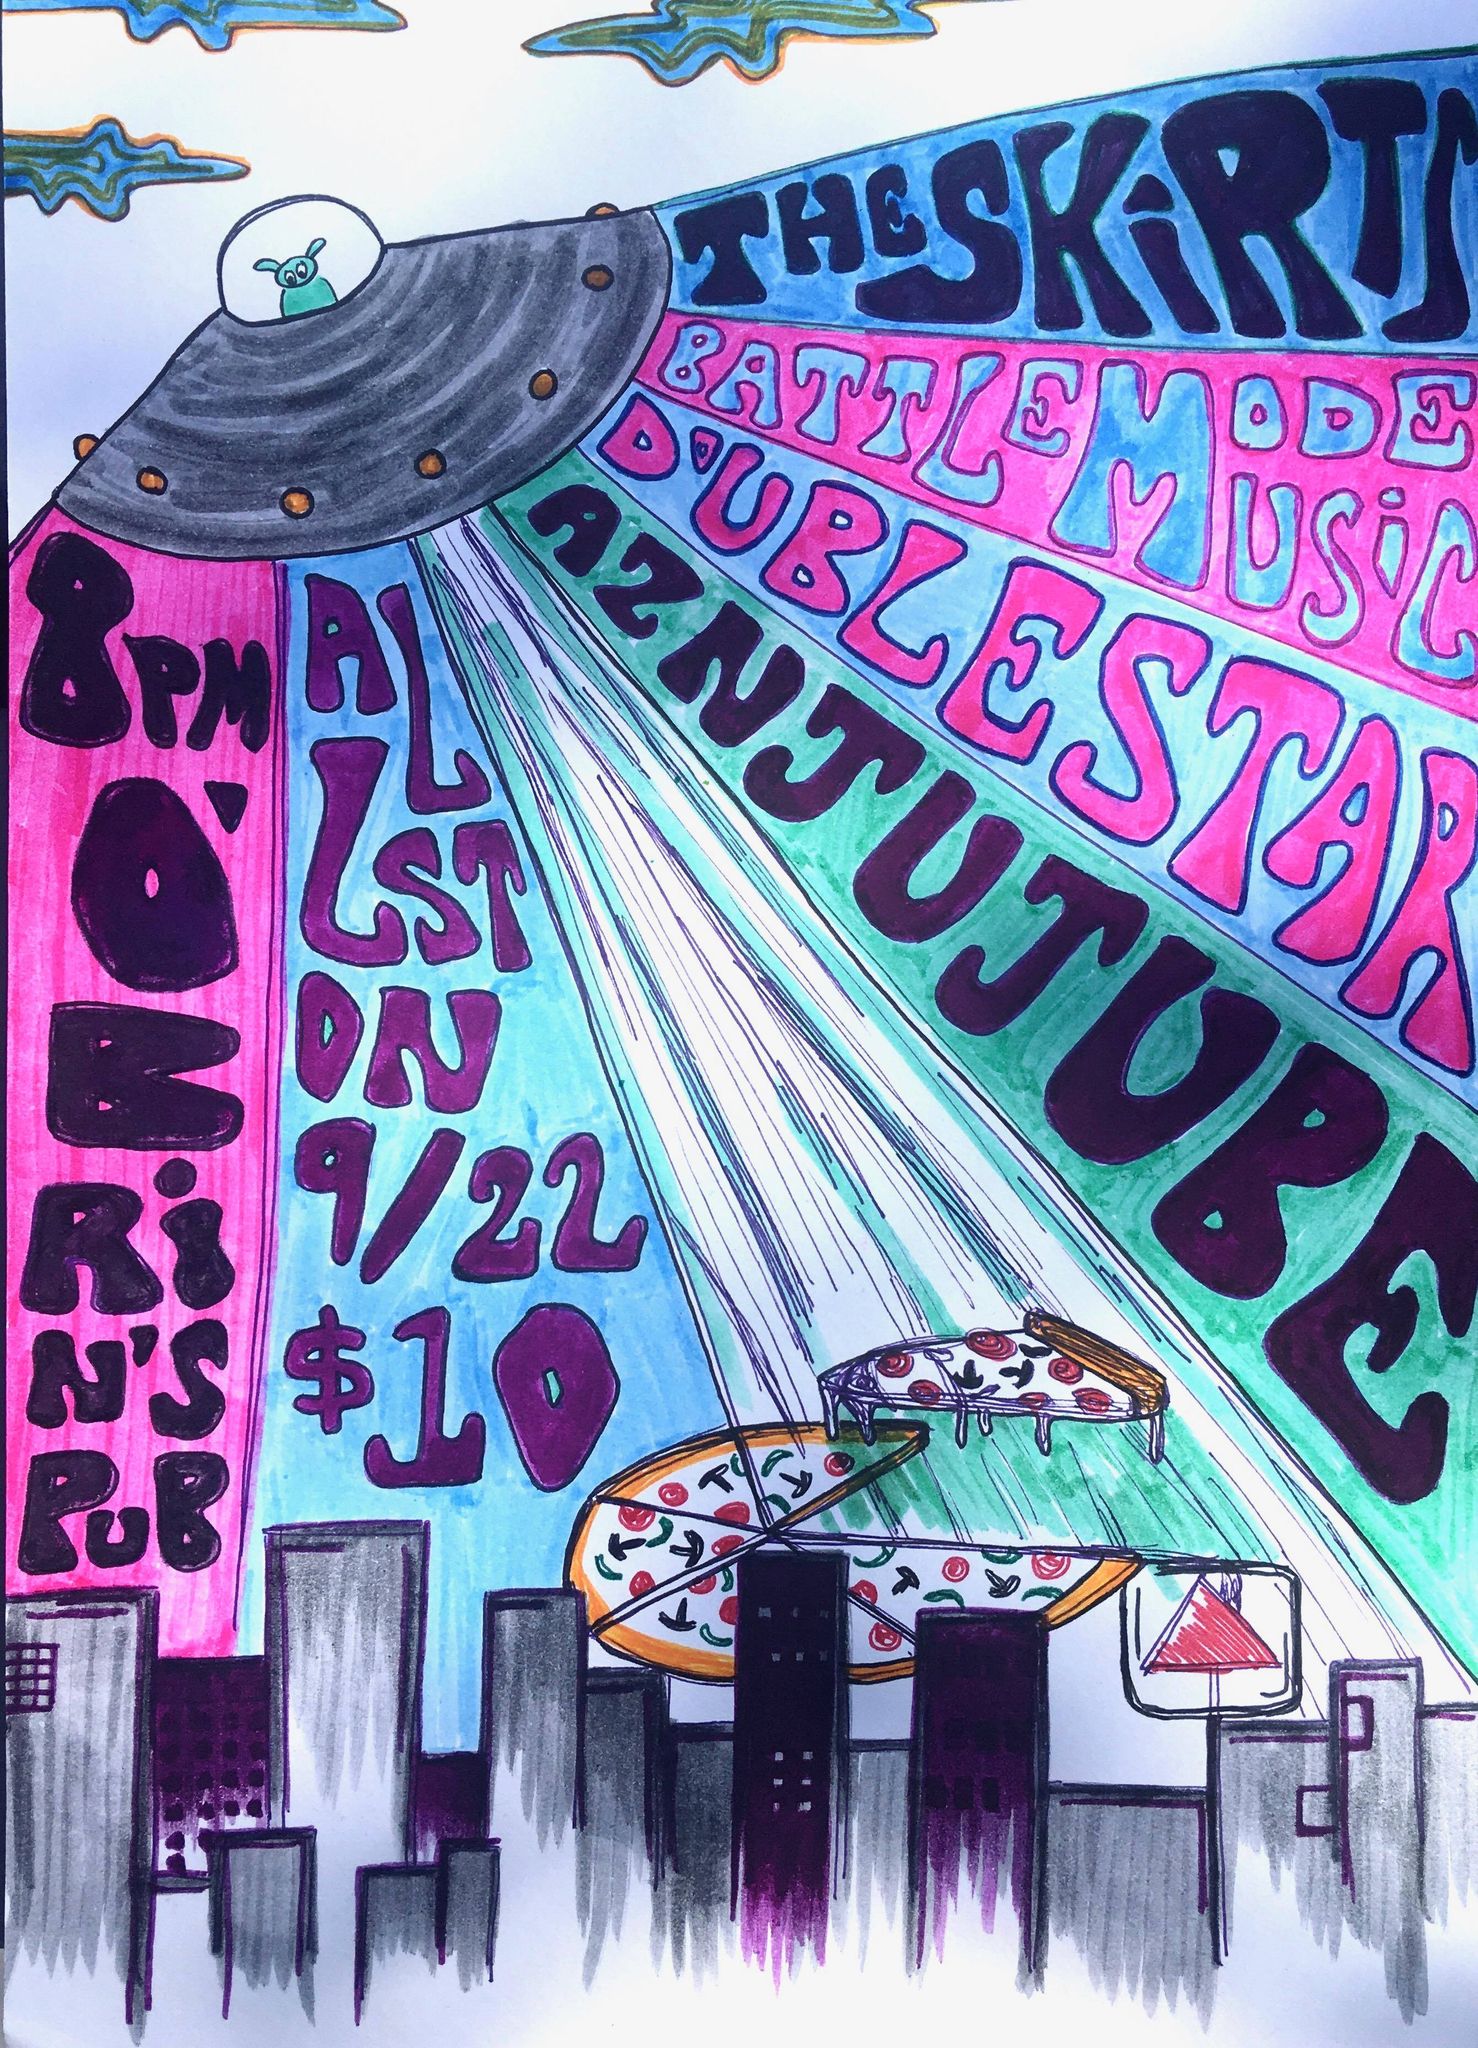 THE SKIRTS
BATTLEMODE
MUSIC
DOUBLE STAR
AZNJUJUBE
8PM
O'
B
Ri
N'S
PUB
AL
LST
ON
9/22
$10